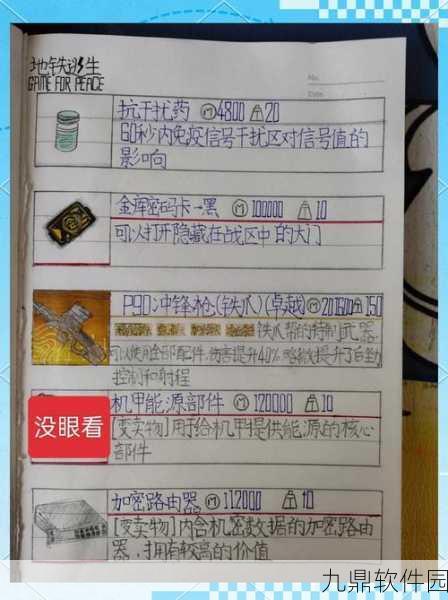 地铁逃生
GAME FOR PEACE
No.
Date
抗干扰药 Ⓜ4800 20
60秒内免疫信号干扰区对信号值的
影响
金库密码卡-黑 Ⓜ100000 10
可以打开隐藏在战区中的大门
P90冲锋枪(铁爪)(卓越)Ⓜ201600 150
铁爪帮的特制武器
可以使用全部配件,伤害提升40%,略微提升了后坐力
控制和射程
没眼看
机甲能源部件 Ⓜ120000 10
[变卖物]用于给机甲提供能源的核心
部件
加密路由器 Ⓜ112000 10
[变卖物]内含机密数据的加密路由
器,拥有较高的价值
九鼎软件园